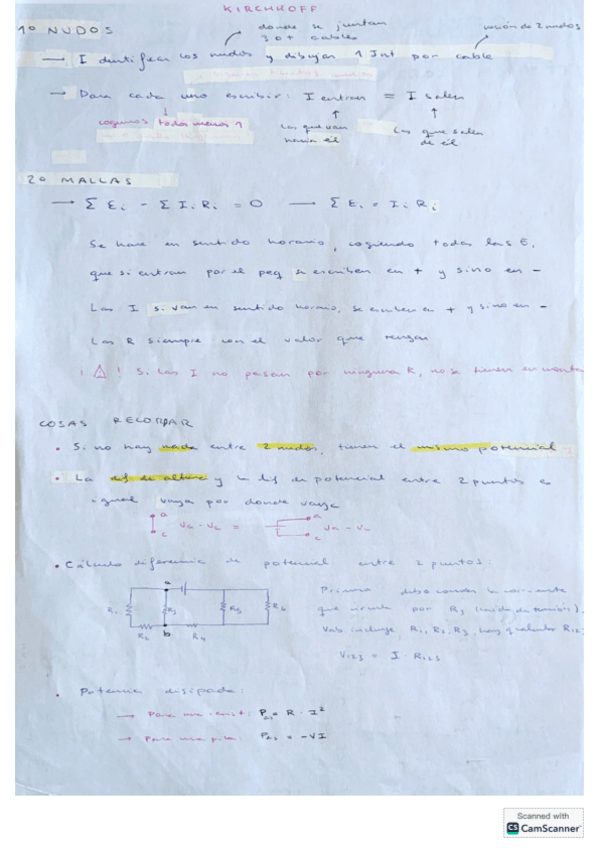 KIRCHHOFF
1º NUDOS
donde se juntan
3 o + cables
unión de 2 nudos
→ Identificar los nudos y dibujar 1 Int por cable
→ Para cada uno escribir: I entran = I salen
cogemos todos menos 1
Las que van
hacia él
Las que salen
de él
2º MALLAS
→ Σ Ei - Σ Ii Ri = 0 → Σ Ei = Ii Ri
Se hace en sentido horario, cogiendo todas las E,
que si entran por el peq se escriben en + y sino en -
Las I si van en sentido horario, se escriben en + y sino en -
Las R siempre con el valor que tengan
! ⚠ ! Si las I no pasan por ninguna R, no se tienen en
COSAS RECORDAR
• Si no hay nada entre 2 nudos, tienen el mismo potencial
• La dif de altura y la dif de potencial entre 2 puntos es
igual vaya por donde vaya
a
c
Va - Vc =
a
c
• Cálculo diferencia de potencial entre 2 puntos:
a
R1
R3
R5
R6
R2
b
R4
Primero debo conocer la corriente
que circula por R3
Vab incluye R1, R2, R3, hay q calcular R123
V123 = I · R123
• Potencia disipada:
→ Para una resist: Pdis = R · I²
→ Para una pila: Pdis = -VI
Scanned with
CS CamScanner